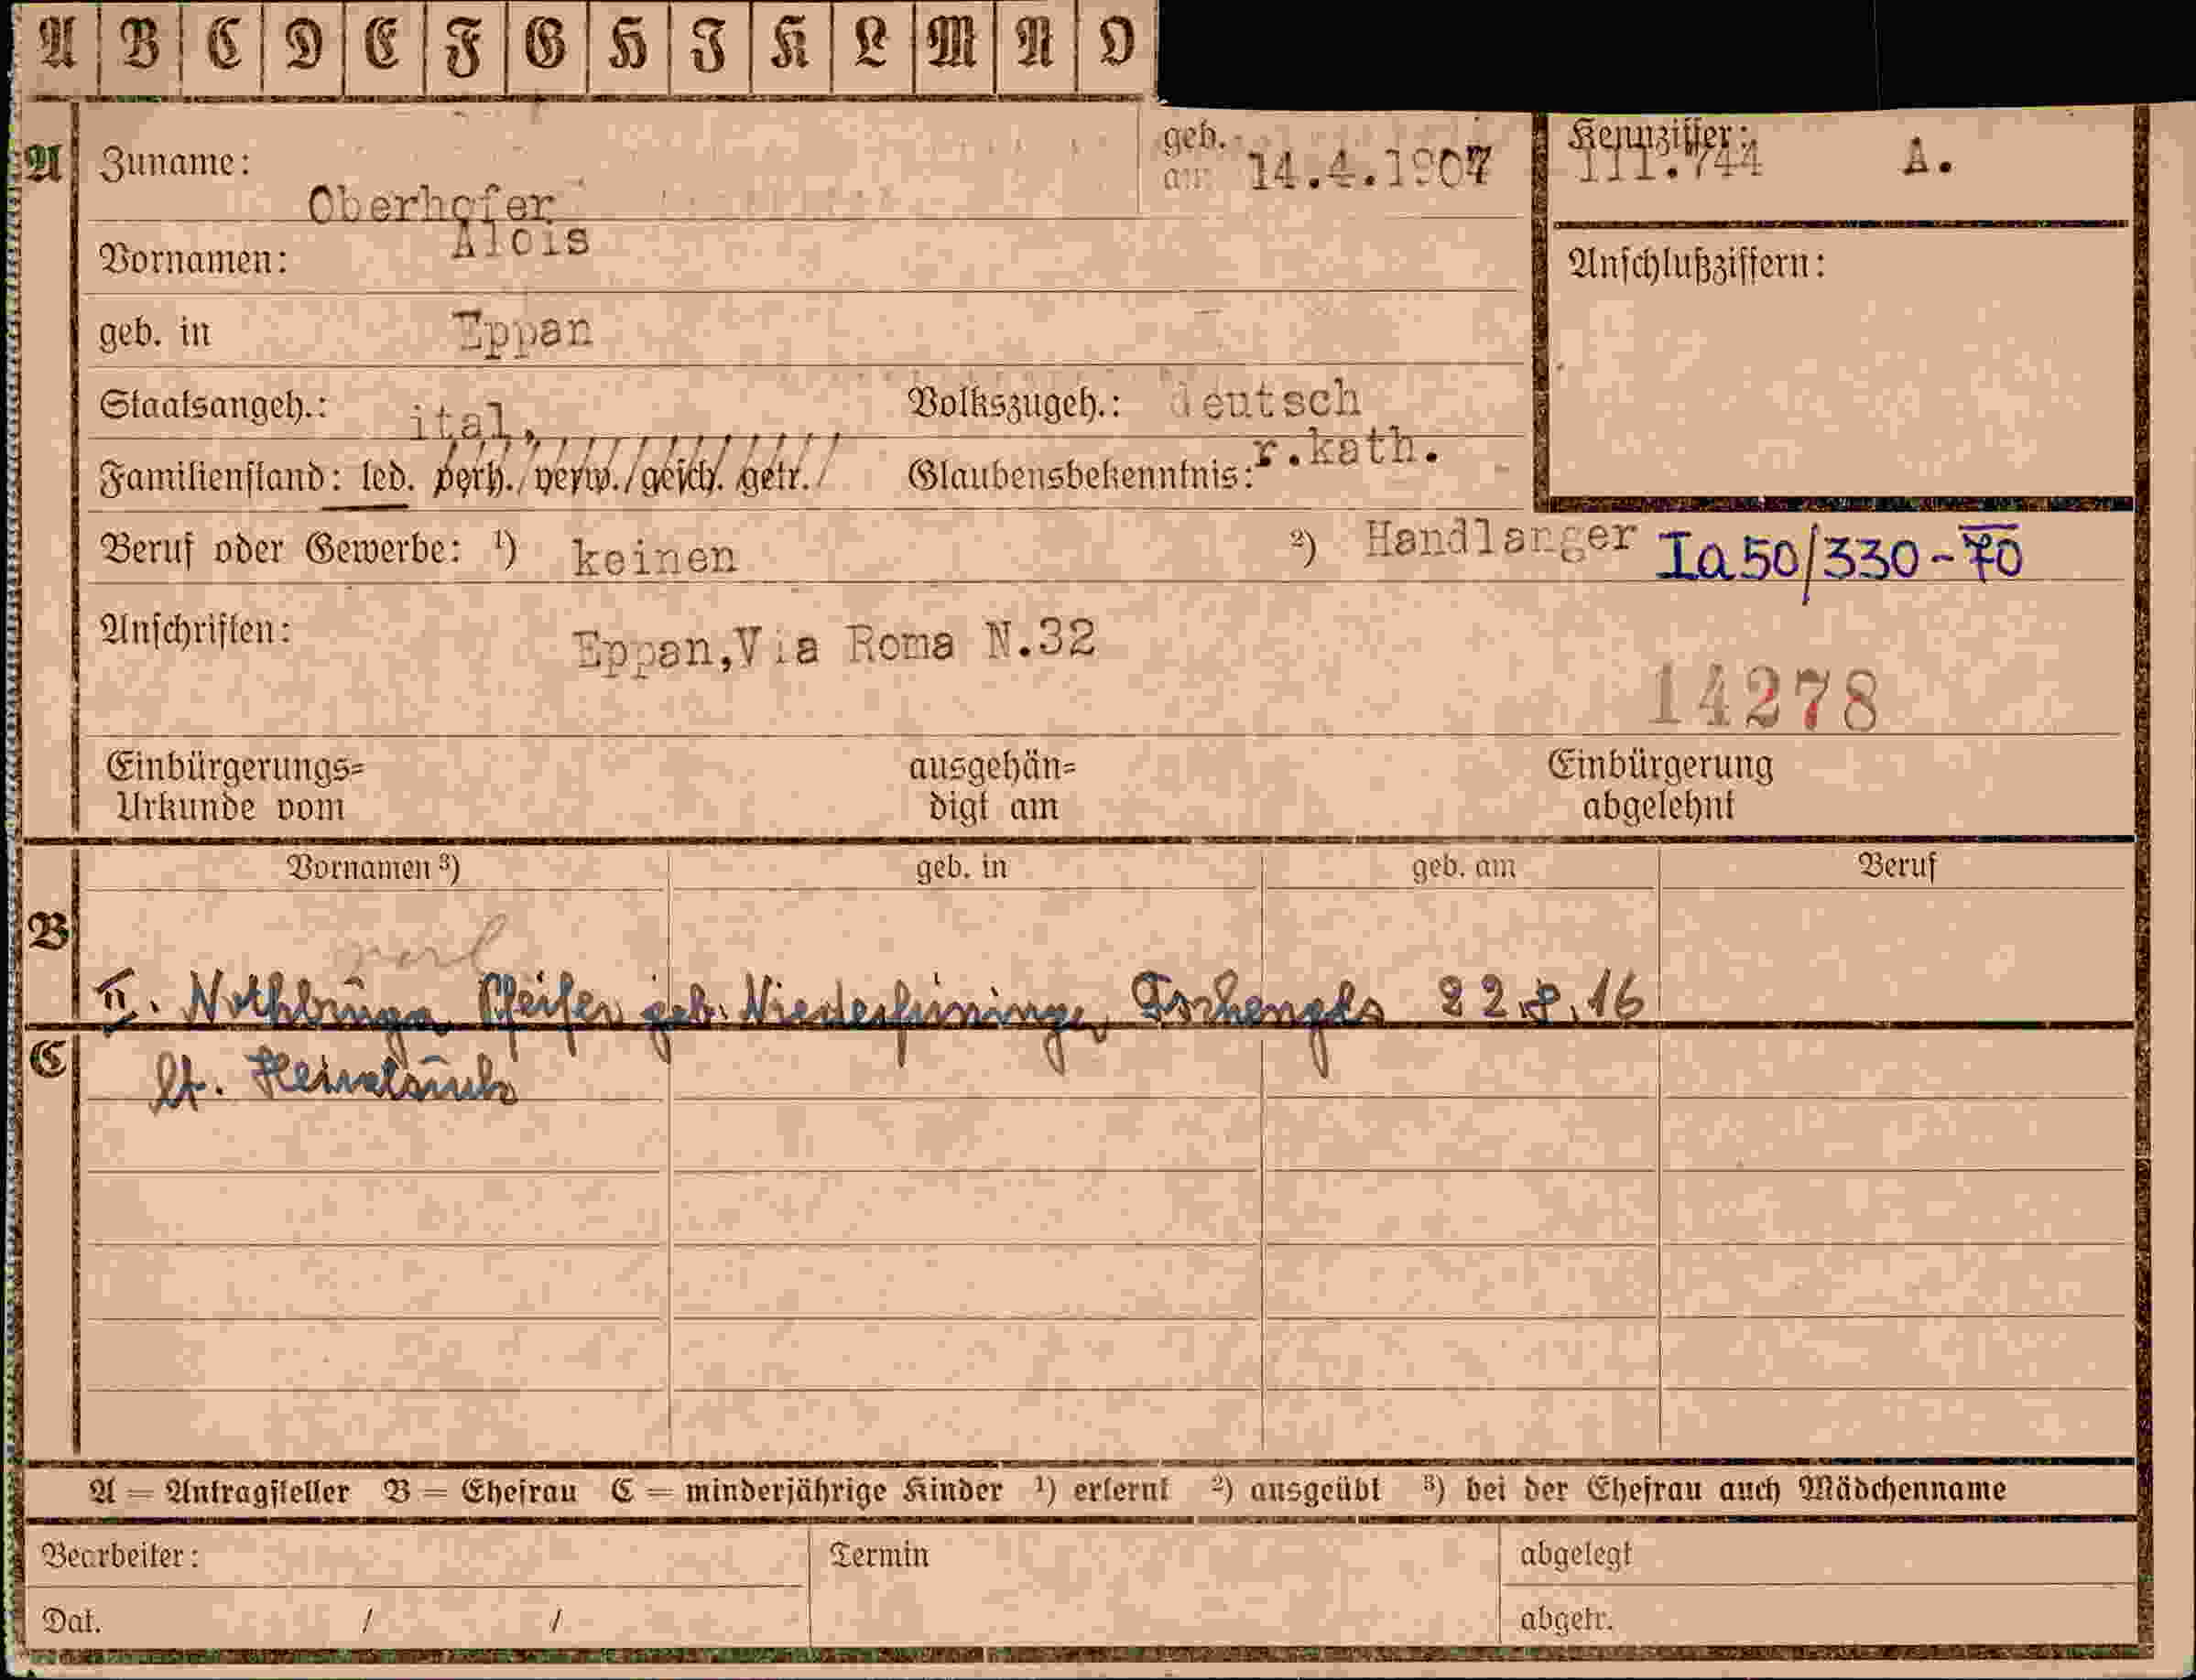 A B C D E F G H I K L M N O
A Zuname: Oberhofer
geb. am 14.4.1907
Kennziffer: 111.744 A.
Vornamen: Alois
Anschlußziffern:
geb. in Eppan
Staatsangeh.: ital. Volkszugeh.: deutsch
Familienstand: led. verh./verw./gesch. getr./ Glaubensbekenntnis: r.kath.
Beruf oder Gewerbe: ¹) keinen ²) Handlanger Ia50/330-70
Anschriften: Eppan,Via Roma N.32
14278
Einbürgerungs=
Urkunde vom
ausgehän=
digt am
Einbürgerung
abgelehnt
Vornamen ³) geb. in geb. am Beruf
B
verl
II. Nothburga Pfeifer geb. Tschengls 22.8.16
C
lt.
A = Antragsteller B = Ehefrau C = minderjährige Kinder ¹) erlernt ²) ausgeübt ³) bei der Ehefrau auch Mädchenname
Bearbeiter: Termin abgelegt
Dat. / / abgetr.